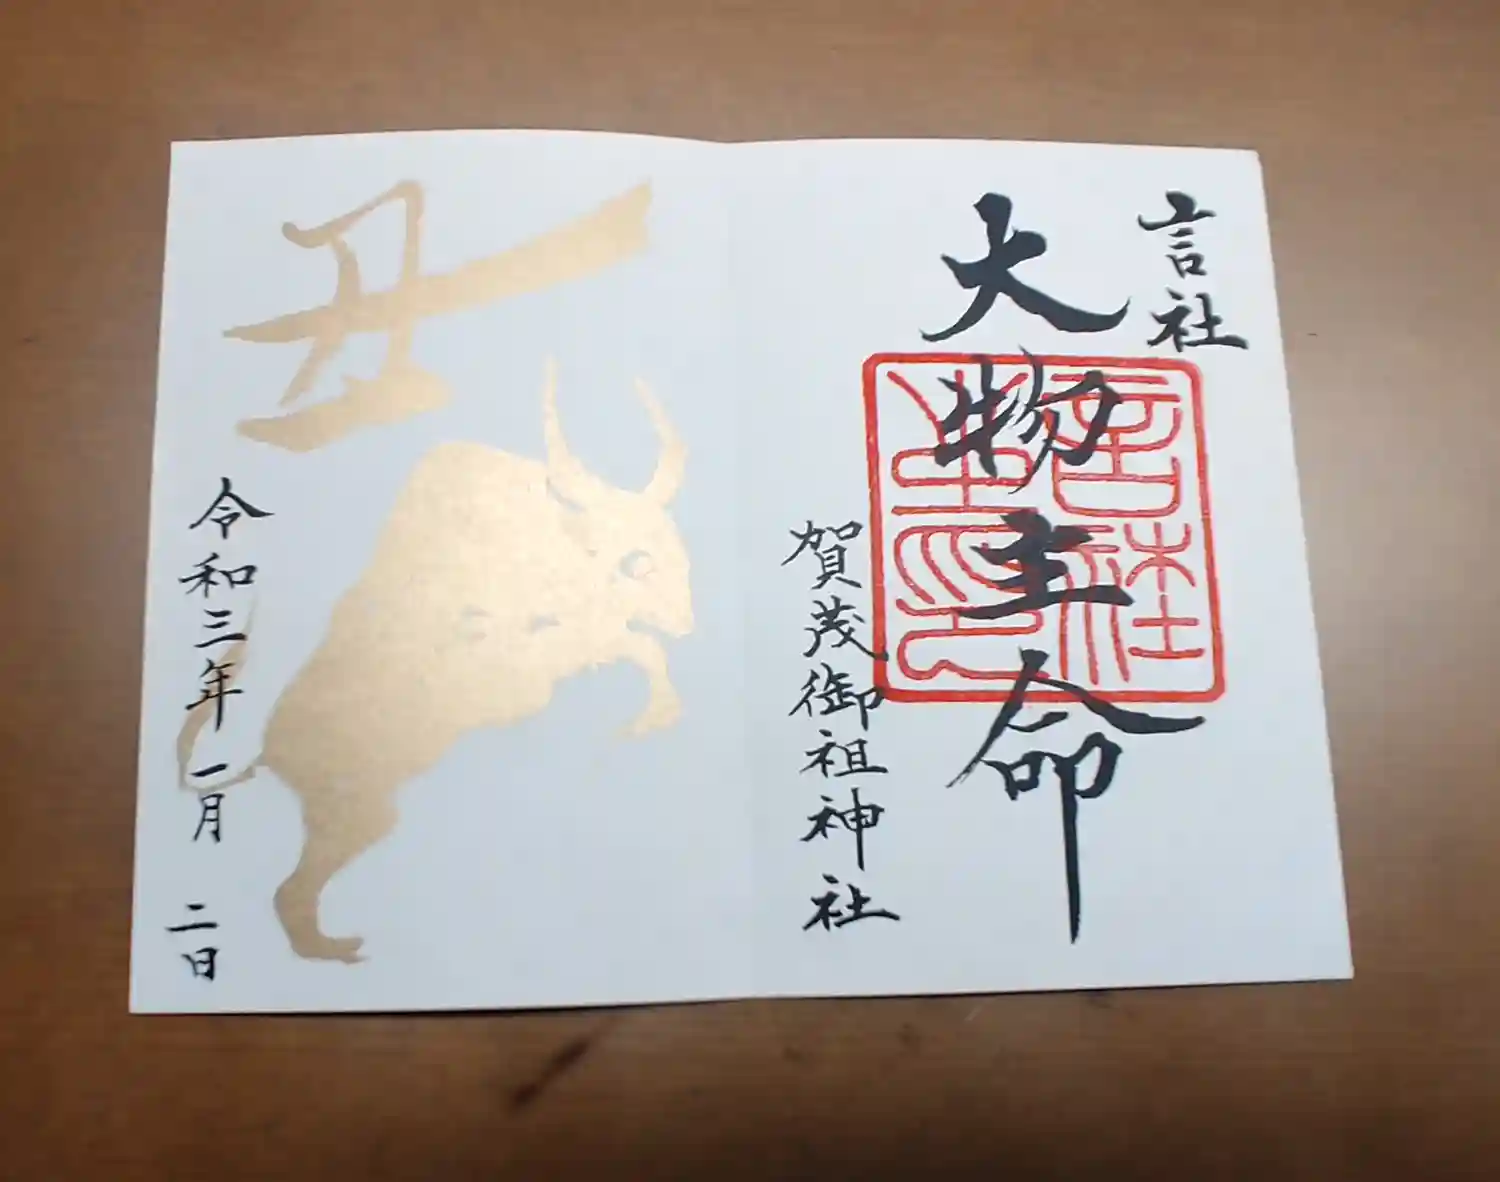 言社
大物主命
言社之印
賀茂御祖神社
丑
令和三年一月二日